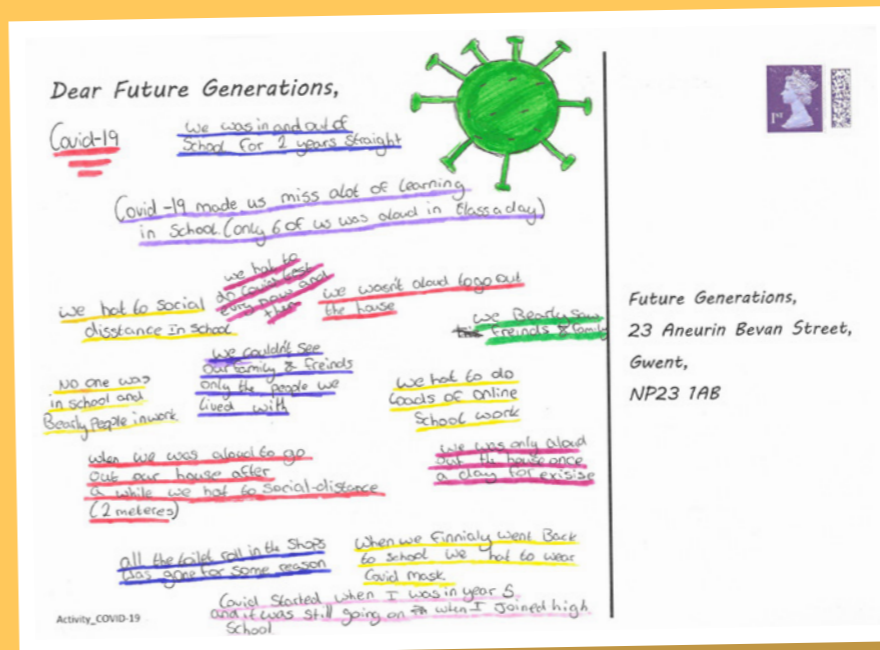 Dear Future Generations,
Covid-19
we was in and out of
School for 2 years straight
Covid-19 made us miss alot of learning
in School (only 6 of us was aloud in class a day)
we hat to social
disstance in school
we hat to
do covid test
evry now and
then
we wasn't aloud to go out
the house
we Bearly saw
Freinds & family
No one was
in school and
Bearly People in work
we couldn't see
our family & freinds
only the people we
lived with
we hat to do
Loads of online
School work
when we was aloud to go
out our house after
a while we hat to social-distance
(2 meteres)
we was only aloud
out the house once
a day for exisise
all the toilet roll in the shops
was gone for some reason
When we Finnialy went Back
to school we hat to wear
Covid mask.
Covid Started when I was in year 5
and it was still going on when I joined high
School
Activity_COVID-19
1st
Future Generations,
23 Aneurin Bevan Street,
Gwent,
NP23 1AB